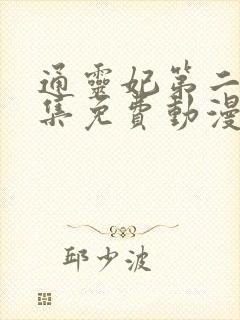 通靈妃第二
集免費動漫
邱少波